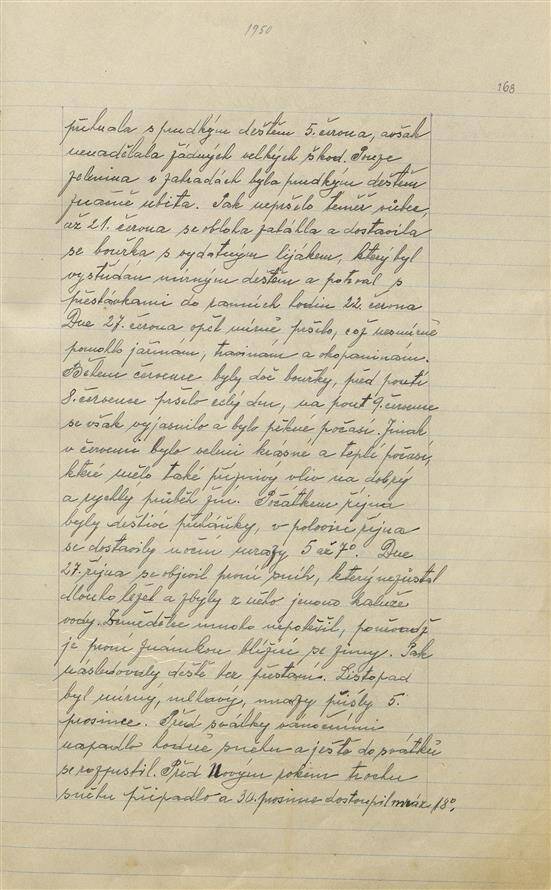 1950
168
přihnala s prudkým deštěm 5. června, avšak
nenadělala žádných velkých škod. Pouze
zelenina v zahradách byla prudkým deštěm
značně ubita. Pak nepršelo téměř vůbec,
až 21. června se obloha zatáhla a dostavila
se bouřka s vydatným lijákem, který byl
vystřídán mírným deštěm a potrval s
přestávkami do ranních hodin 22. června
Dne 27. června opět mírně pršelo, což nesmírně
pomohlo jařinám, travinám a okopaninám.
Během července byly dvě bouřky, před poutí
8. července pršelo celý den, na pouť 9. července
se však vyjasnilo a bylo pěkné počasí. Jinak
v červenci bylo velmi krásné a teplé počasí,
které mělo také příznivý vliv na dobrý
a rychlý průběh žní. Počátkem října
byly deštivé přeháňky, v polovici října
se dostavily noční mrazy 5 až 7°. Dne
27. října se objevil první sníh, který nezůstal
dlouho ležet a zbyly z něho jenom kaluže
vody. Zemědělce mnoho nepotěšil, poněvadž
je první známkou blížící se zimy. Pak
následovaly deště bez přestání. Listopad
byl mírný, mlhavý, mrazy přišly 5.
prosince. Před svátky vánočními
napadlo hodně sněhu a ještě do svátků
se rozpustil. Před Novým rokem trochu
sněhu připadlo a 30. prosince dostoupil mráz 18°,